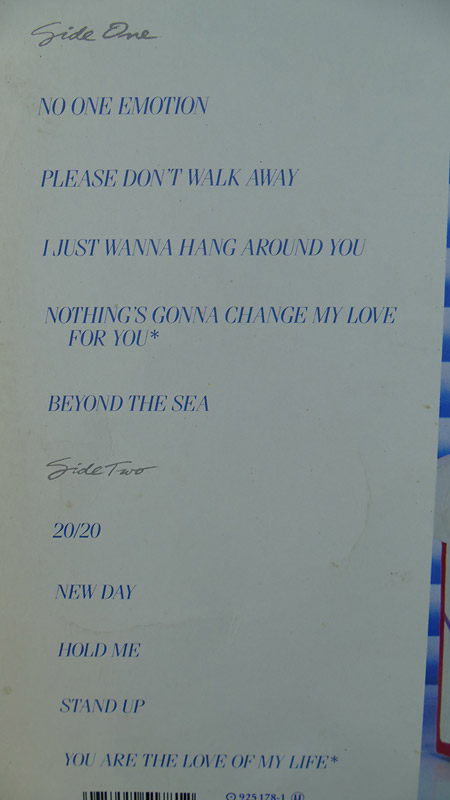 Side One
NO ONE EMOTION
PLEASE DON'T WALK AWAY
I JUST WANNA HANG AROUND YOU
NOTHING'S GONNA CHANGE MY LOVE
FOR YOU*
BEYOND THE SEA
Side Two
20/20
NEW DAY
HOLD ME
STAND UP
YOU ARE THE LOVE OF MY LIFE*
925 178-1 U